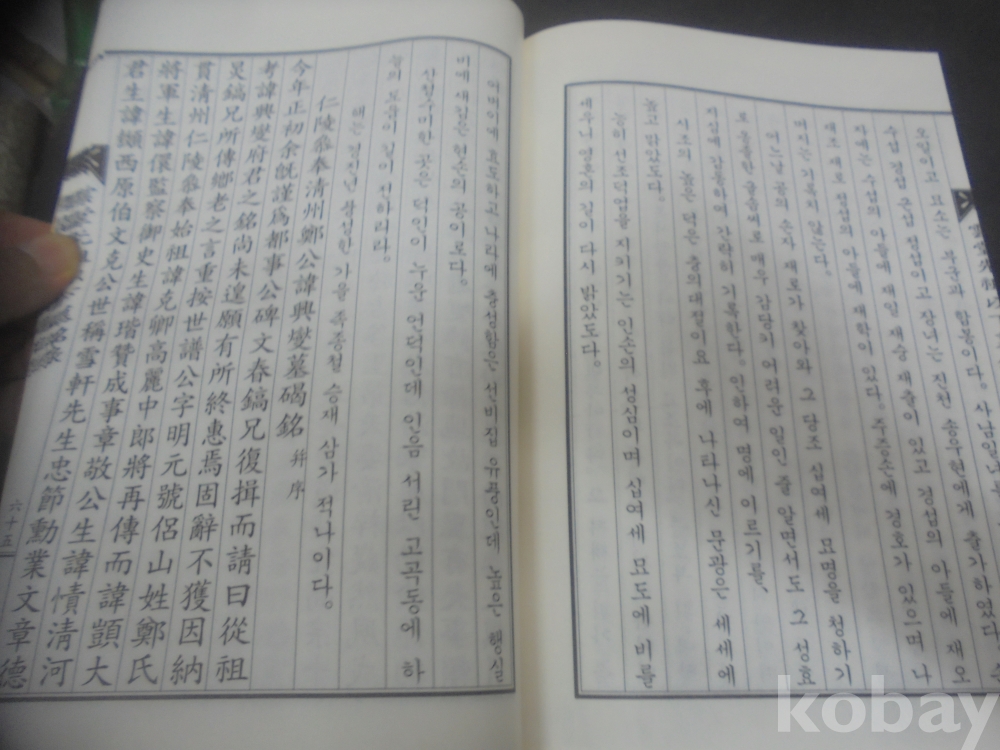 온일이고 묘소는 부군과 합봉이다. 사남일녀
수섭 경섭 군섭 정섭이고 장녀는 진천 송우현에게 출가하였다.
수섭의 아들에 재일 재승 재출이 있고 경섭의 아들에 재오
재조 재로 정섭의 아들에 재학이 있다. 주증손에 경호가 있으며 나
머지는 기록지 않는다.
여느날 공의 손자 재로가 찾아와 그 당조 십여세 묘명을 청하기
로 졸졸한 매우 감당키 어려운 일인 줄 알면서도 그 성효
감동하여 간략히 기록한다. 인하여 명에 이르기를,
시조의 높은 덕은 충의대절이요 후에 나타나신 문광은 세세에
높고 밝았도다.
능히 선조덕업을 지키기는 인손의 성심이며 십여세 묘도에 비를
세우니 영혼의 길이 다시 밝았도다.
어버이에 효도하고 나라에 충성함은 선비집 유풍인데 높은 행실
비에 새김은 현손의 공이로다.
산천수미한 곳은 덕인이 누운 언덕인데 인음 서린 고곡동에 하
늘의 도움이 길이 전하리라.
해는 경진년 풍성한 가을 족종철 승재 삼가 적나이다.
仁陵叅奉淸州鄭公諱興燮墓碣銘 幷序
今年正初余旣謹爲都事公碑文春鎬兄復揖而請曰從祖
考諱興燮府君之銘尙未遑願有所終惠焉固辭不獲因納
炅鎬兄所傳鄕老之言重按世譜公字明元號侶山姓鄭氏
貫淸州仁陵叅奉始祖諱克卿高麗中郞將再傳而諱顗大
將軍生諱儇監察御史生諱瑎贊成事章敬公生諱㥽淸河
君生諱䫨西原伯文克公世稱雪軒先生忠節勳業文章德
六十五
kobay